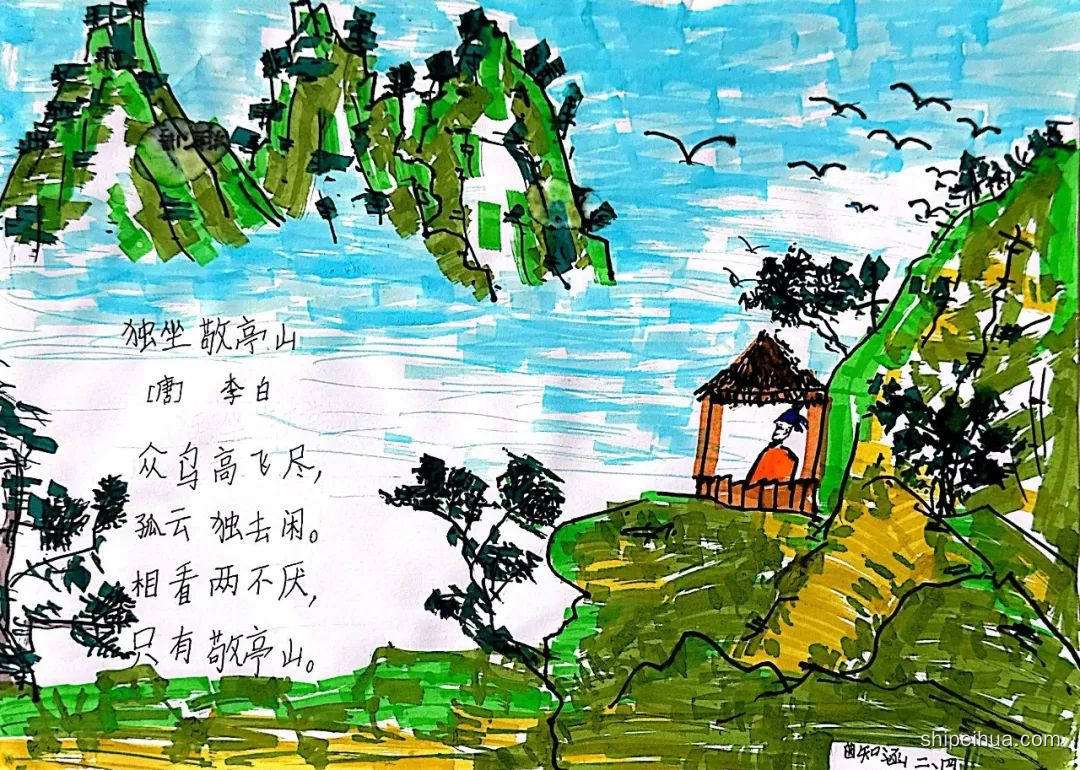 独坐敬亭山
[唐] 李白
众鸟高飞尽,
孤云独去闲。
相看两不厌,
只有敬亭山。
shipeihua.com
知涵 二、四